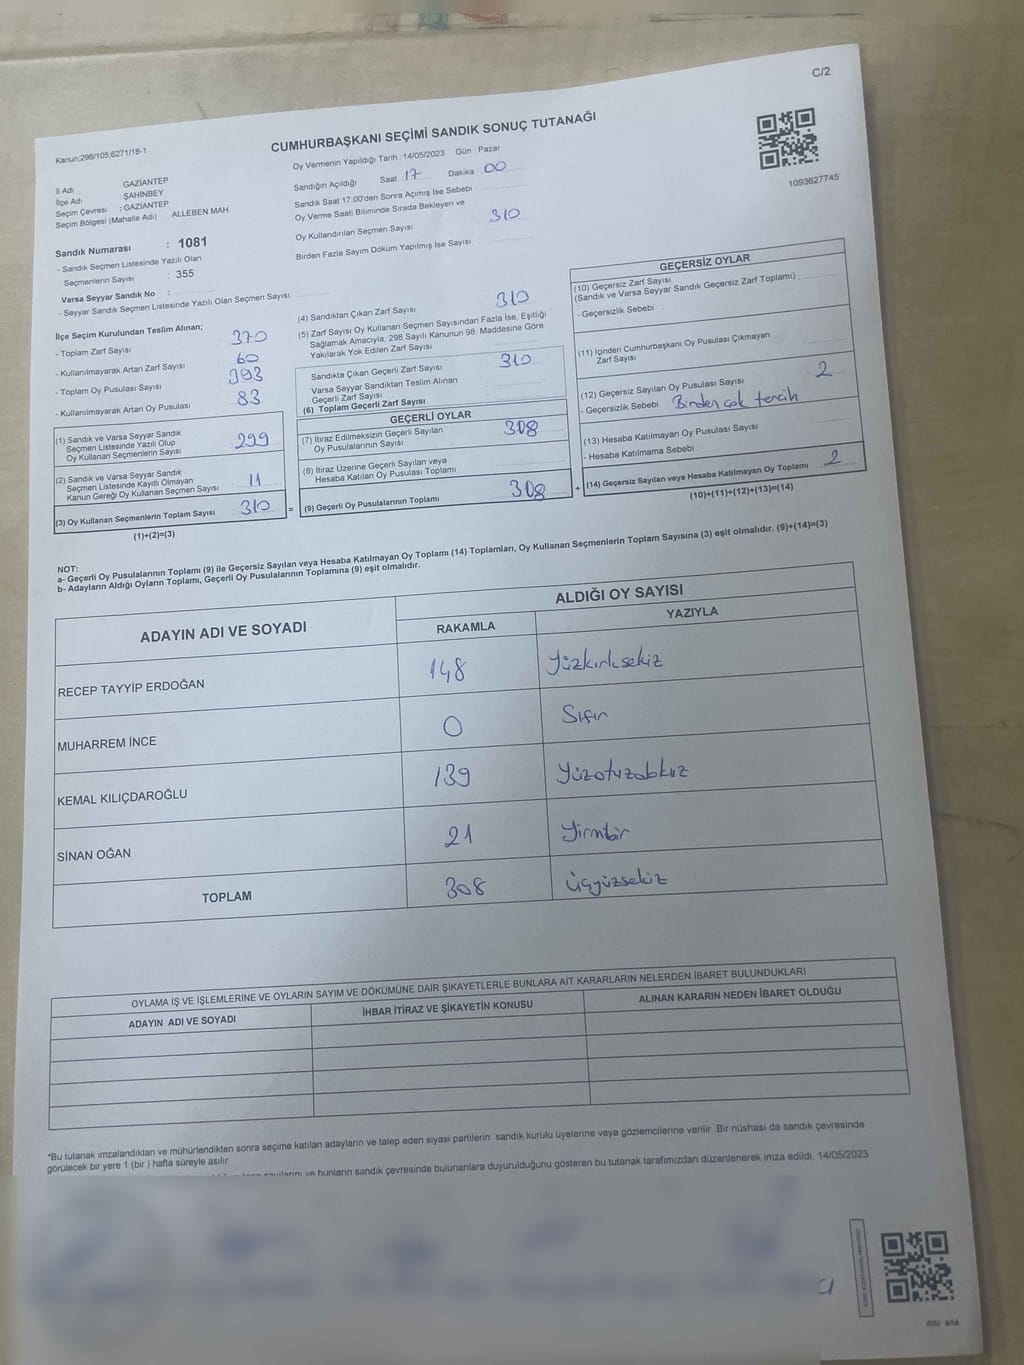 C/2
Kanun;298/105;6271/18-1
CUMHURBAŞKANI SEÇİMİ SANDIK SONUÇ TUTANAĞI
1093627745
İl Adı GAZİANTEP
İlçe Adı : ŞAHİNBEY
Seçim Çevresi : GAZİANTEP
Seçim Bölgesi (Mahalle Adı) : ALLEBEN MAH.
Sandık Numarası : 1081
- Sandık Seçmen Listesinde Yazılı Olan
Seçmenlerin Sayısı : 355
Varsa Seyyar Sandık No :
- Seyyar Sandık Seçmen Listesinde Yazılı Olan Seçmen Sayısı:
Oy Vermenin Yapıldığı Tarih : 14/05/2023 Gün : Pazar
Sandığın Açıldığı Saat 17 Dakika 00
Sandık Saat 17:00'den Sonra Açımış İse Sebebi
Oy Verme Saati Bitiminde Sırada Bekleyen ve
Oy Kullandırılan Seçmen Sayısı 310
Birden Fazla Sayım Döküm Yapılmış İse Sayısı
İlçe Seçim Kurulundan Teslim Alınan;
- Toplam Zarf Sayısı 370
- Kullanılmayarak Artan Zarf Sayısı 60
- Toplam Oy Pusulası Sayısı 393
- Kullanılmayarak Artan Oy Pusulası 83
(1) Sandık ve Varsa Seyyar Sandık
Seçmen Listesinde Yazılı Olup
Oy Kullanan Seçmenlerin Sayısı 299
(2) Sandık ve Varsa Seyyar Sandık
Seçmen Listesinde Kayıtlı Olmayan
Kanun Gereği Oy Kullanan Seçmen Sayısı 11
(3) Oy Kullanan Seçmenlerin Toplam Sayısı 310
(1)+(2)=(3)
=
(4) Sandıktan Çıkan Zarf Sayısı 310
(5) Zarf Sayısı Oy Kullanan Seçmen Sayısından Fazla İse, Eşitliği
Sağlamak Amacıyla; 298 Sayılı Kanunun 98. Maddesine Göre
Yakılarak Yok Edilen Zarf Sayısı
Sandıkta Çıkan Geçerli Zarf Sayısı 310
Varsa Seyyar Sandıktan Teslim Alınan
Geçerli Zarf Sayısı
(6) Toplam Geçerli Zarf Sayısı
GEÇERLİ OYLAR
(7) İtiraz Edilmeksizin Geçerli Sayılan
Oy Pusulalarının Sayısı 308
(8) İtiraz Üzerine Geçerli Sayılan veya
Hesaba Katılan Oy Pusulası Toplamı
(9) Geçerli Oy Pusulalarının Toplamı 308
+
GEÇERSİZ OYLAR
(10) Geçersiz Zarf Sayısı
(Sandık ve Varsa Seyyar Sandık Geçersiz Zarf Toplamı) :
- Geçersizlik Sebebi :
(11) İçinden Cumhurbaşkanı Oy Pusulası Çıkmayan
Zarf Sayısı
(12) Geçersiz Sayılan Oy Pusulası Sayısı 2
- Geçersizlik Sebebi : Birden çok tercih
(13) Hesaba Katılmayan Oy Pusulası Sayısı
- Hesaba Katılmama Sebebi :
(14) Geçersiz Sayılan veya Hesaba Katılmayan Oy Toplamı 2
(10)+(11)+(12)+(13)=(14)
NOT:
a- Geçerli Oy Pusulalarının Toplamı (9) ile Geçersiz Sayılan veya Hesaba Katılmayan Oy Toplamı (14) Toplamları, Oy Kullanan Seçmenlerin Toplam Sayısına (3) eşit olmalıdır. (9)+(14)=(3)
b- Adayların Aldığı Oyların Toplamı, Geçerli Oy Pusulalarının Toplamına (9) eşit olmalıdır.
ADAYIN ADI VE SOYADI ALDIĞI OY SAYISI
RAKAMLA YAZIYLA
RECEP TAYYİP ERDOĞAN 148 Yüzkırksekiz
MUHARREM İNCE 0 Sıfır
KEMAL KILIÇDAROĞLU 139 Yüzotuzdokuz
SİNAN OĞAN 21 Yirmibir
TOPLAM 308 Üçyüzsekiz
OYLAMA İŞ VE İŞLEMLERİNE VE OYLARIN SAYIM VE DÖKÜMÜNE DAİR ŞİKAYETLERLE BUNLARA AİT KARARLARIN NELERDEN İBARET BULUNDUKLARI
ADAYIN ADI VE SOYADI İHBAR İTİRAZ VE ŞİKAYETİN KONUSU ALINAN KARARIN NEDEN İBARET OLDUĞU
*Bu tutanak imzalandıktan ve mühürlendikten sonra seçime katılan adayların ve talep eden siyasi partilerin sandık kurulu üyelerine veya gözlemcilerine verilir. Bir nüshası da sandık çevresinde
görülecek bir yere 1 (bir ) hafta süreyle asılır
ve bunların sandık çevresinde bulunanlara duyurulduğunu gösteren bu tutanak tarafımızdan düzenlenerek imza edildi. 14/05/2023